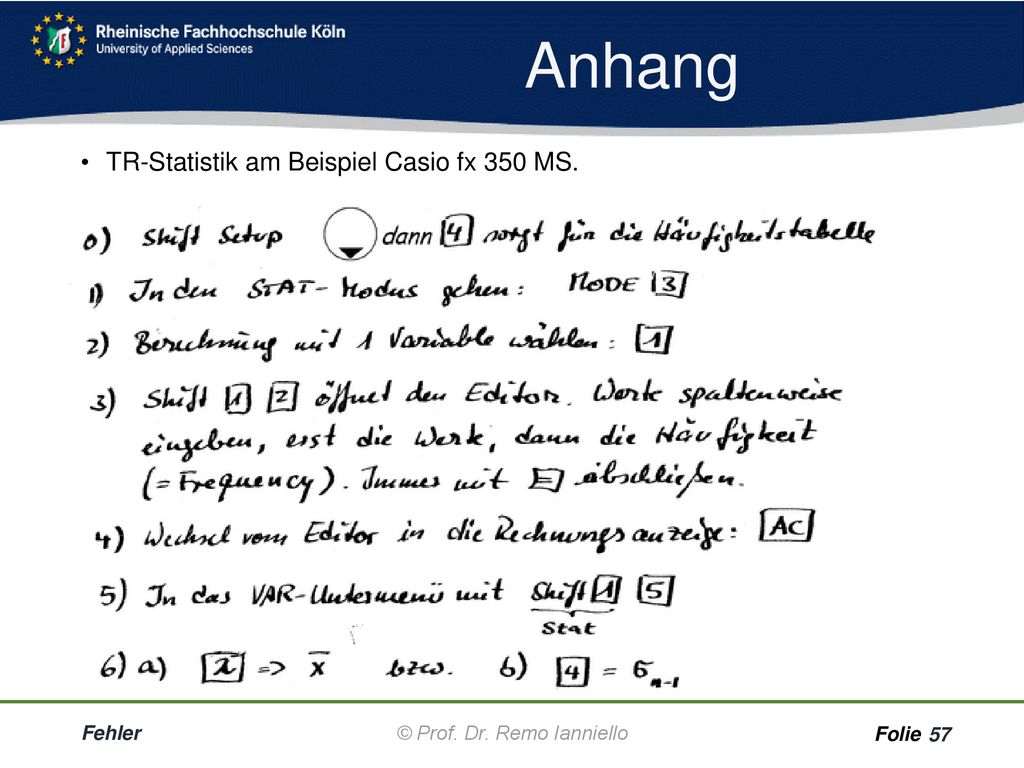 Rheinische Fachhochschule Köln
University of Applied Sciences
Anhang
• TR-Statistik am Beispiel Casio fx 350 MS.
0) Shift Setup ▼ dann [4] sorgt für die Häufigkeitstabelle
1) In den STAT-Modus gehen: MODE [3]
2) Berechnung mit 1 Variable wählen: [1]
3) Shift [1] [2] öffnet den Editor. Werte spaltenweise
eingeben, erst die Werte, dann die Häufigkeit
(= Frequency). Immer mit [=] abschließen.
4) Wechsel vom Editor in die Rechnungsanzeige: [AC]
5) In das VAR-Untermenü mit Shift [1] [5]
Stat
6) a) [2] => x̄ bzw. b) [4] = σn-1
Fehler
© Prof. Dr. Remo Ianniello
Folie 57